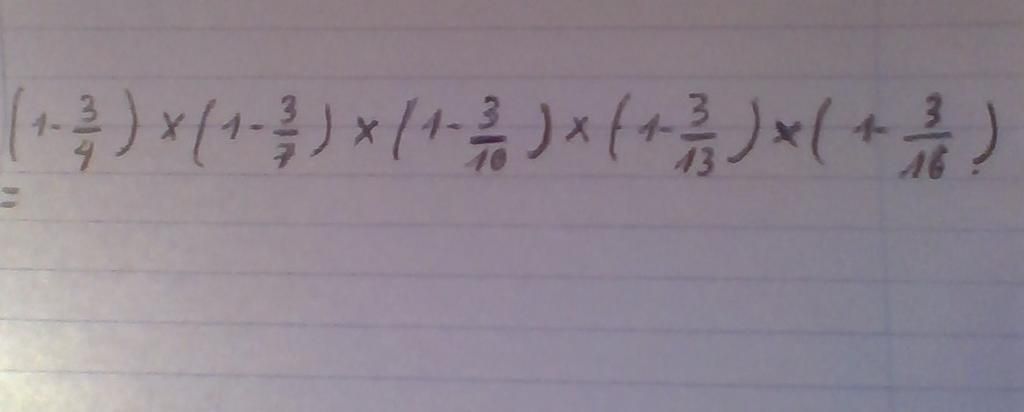 (1-3/4)×(1-3/7)×(1-3/10)×(1-3/13)×(1-3/16)
=